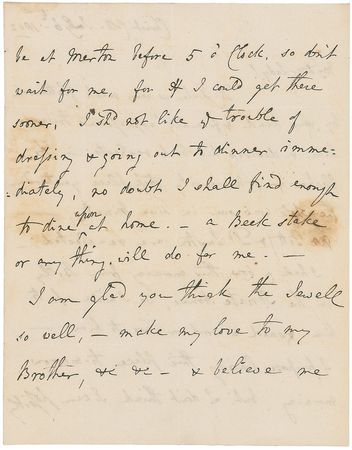 be at Merton before 5 o Clock, so don't
wait for me, for tho I could get there
sooner, I shd not like ye trouble of
dressing & going out to dinner imme-
=diately, no doubt I shall find enough
to dine upon at home. – a Beek stake
or any thing will do for me. –
I am glad you think the Jewell
so well, – make my love to my
Brother, &c &c – & believe me